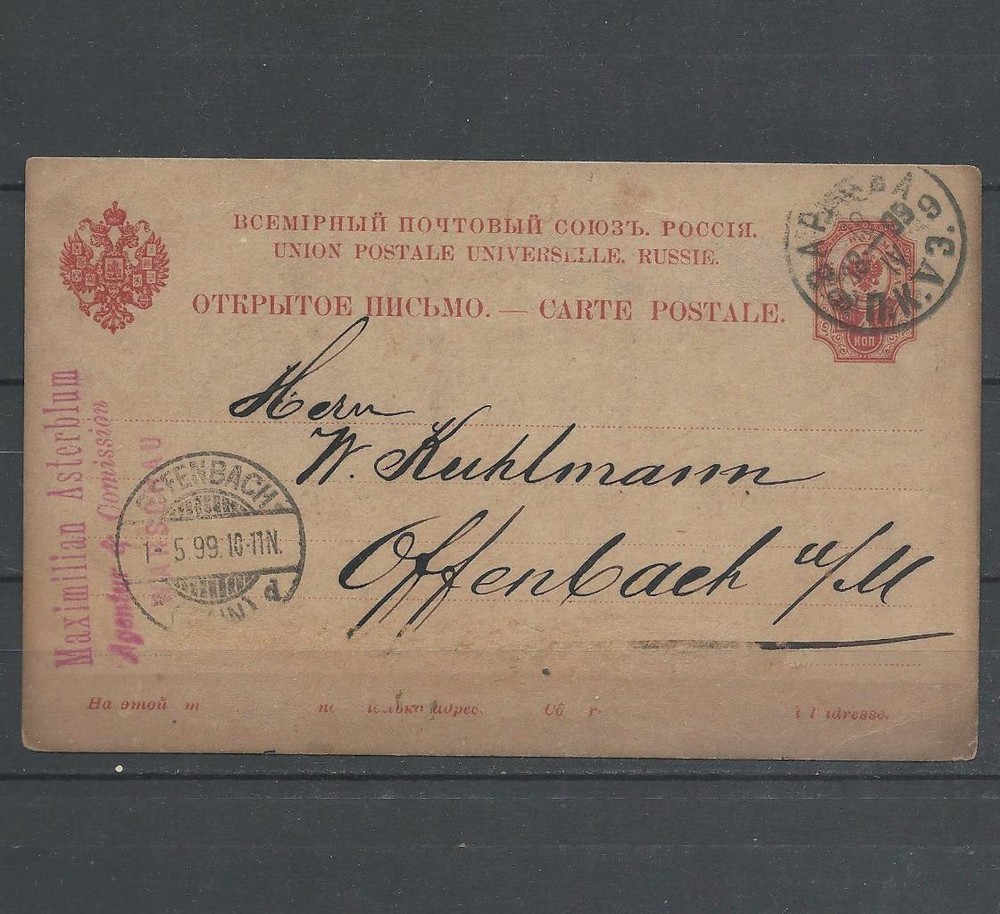 ВСЕМІРНЫЙ ПОЧТОВЫЙ СОЮЗЪ. РОССІЯ.
UNION POSTALE UNIVERSELLE. RUSSIE.
ОТКРЫТОЕ ПИСЬМО. — CARTE POSTALE.
ВАРШАВА
П.К.
КОП
Herrn
W. Kuhlmann
Offenbach a/M
Maximilian Asterblum
Agentur & Comission
WARSCHAU
OFFENBACH
1 - 5.99.10-11N.
(MAIN) d
На этой
только адрес.
l'adresse.